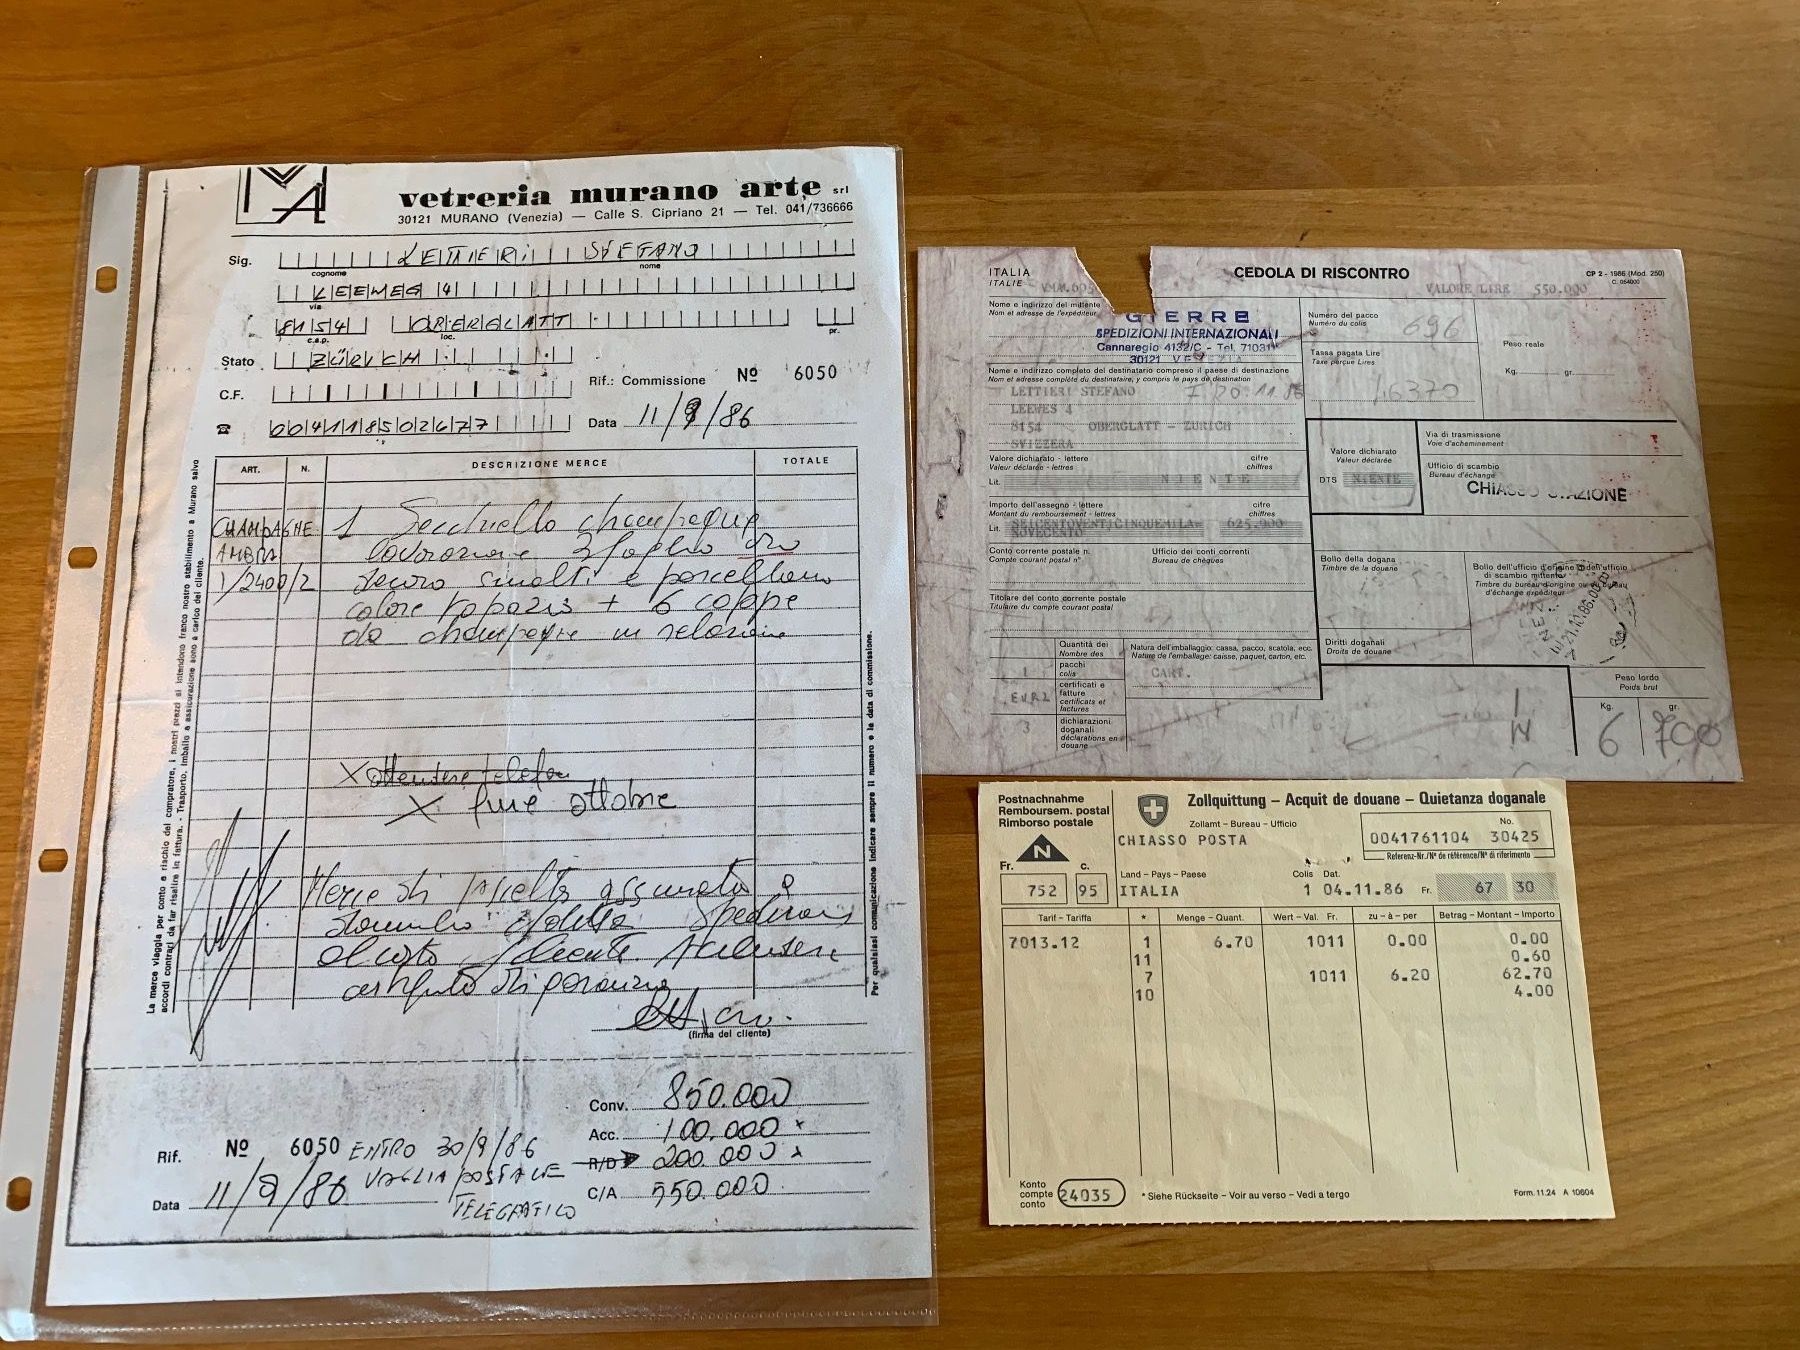 MA
vetreria murano arte srl
30121 MURANO (Venezia) — Calle S. Cipriano 21 — Tel. 041/736666
Sig. LETTIERI STEFANO
cognome nome
LEEWEG 4
via
8154 OBERGLATT
c.a.p. loc. pr.
Stato ZÜRICH
C.F.
Rif.: Commissione Nº 6050
☎ 004118502677
Data 11/9/86
ART. N. DESCRIZIONE MERCE TOTALE
CHAMPAGNE 1 Secchiello champagne
AMBRA lavorazione 3 foglie oro
1/2400/2 zecro smalti e porcellana
colore topazio + 6 coppe
da champagne in relazione
X attendere telefon
X fine ottobre
Merce di scelta assicurata a
domicilio Spedizione
al costo cliente.
certificato di garanzia
(firma del cliente)
La merce viaggia per conto e rischio del compratore, i nostri prezzi si intendono franco nostro stabilimento a Murano salvo
accordi contrari da far risalire in fattura. - Trasporto, imballo e assicurazione sono a carico del cliente.
Per qualsiasi comunicazione indicare sempre il numero e la data di commissione.
Conv. 850.000
Acc. 100.000 x
R/D 200.000 x
C/A 550.000
Rif. Nº 6050 ENTRO 30/9/86
VAGLIA POSTALE
Data 11/9/86
TELEGRAFICO
ITALIA
ITALIE
CEDOLA DI RISCONTRO
CP 2 - 1986 (Mod. 250)
C. 054000
VALORE LIRE 550.000
Nome e indirizzo del mittente
Nom et adresse de l'expéditeur
GIERRE
SPEDIZIONI INTERNAZIONALI
Cannaregio 4132/C - Tel. 71031
30121 VENEZIA
Numero del pacco
Numéro du colis
696
Tassa pagata Lire
Taxe perçue Lires
16370
Peso reale
Kg. gr.
Nome e indirizzo completo del destinatario compreso il paese di destinazione
Nom et adresse complète du destinataire, y compris le pays de destination
LETTIERI STEFANO
LEEWES 4
8154 OBERGLATT - ZURICH
SVIZZERA
20.11.86
Valore dichiarato - lettere cifre
Valeur déclarée - lettres chiffres
Lit. NIENTE
Valore dichiarato
Valeur déclarée
DTS NIENTE
Via di trasmissione
Voie d'acheminement
Ufficio di scambio
Bureau d'échange
CHIASSO STAZIONE
Importo dell'assegno - lettere cifre
Montant du remboursement - lettres chiffres
Lit. SEICENTOVENTICINQUEMILA= 625.900
NOVECENTO
Conto corrente postale n. Ufficio dei conti correnti
Compte courant postal n° Bureau de chèques
Titolare del conto corrente postale
Titulaire du compte courant postal
Bollo della dogana
Timbre de la douane
Bollo dell'ufficio d'origine o dell'ufficio
di scambio mittente
Timbre du bureau d'origine ou du bureau
d'échange expéditeur
Diritti doganali
Droits de douane
Quantità dei
Nombre des
Natura dell'imballaggio: cassa, pacco, scatola, ecc.
Nature de l'emballage: caisse, paquet, carton, etc.
1 pacchi
colis
CART.
EUR2 certificati e
fatture
certificats et
factures
3 dichiarazioni
doganali
déclarations en
douane
Peso lordo
Poids brut
Kg. gr.
6 700
Postnachnahme
Remboursem. postal
Rimborso postale
N
Fr. c.
752 95
Zollquittung – Acquit de douane – Quietanza doganale
Zollamt - Bureau - Ufficio
CHIASSO POSTA
No.
0041761104 30425
Referenz-Nr./N° de référence/N° di riferimento
Land - Pays - Paese
ITALIA
Colis Dat.
1 04.11.86 Fr. 67 30
Tarif - Tariffa * Menge - Quant. Wert - Val. Fr. zu - à - per Betrag - Montant - Importo
7013.12 1 6.70 1011 0.00 0.00
11 0.60
7 1011 6.20 62.70
10 4.00
Konto
compte
conto
24035
* Siehe Rückseite - Voir au verso - Vedi a tergo
Form. 11.24 A 10604